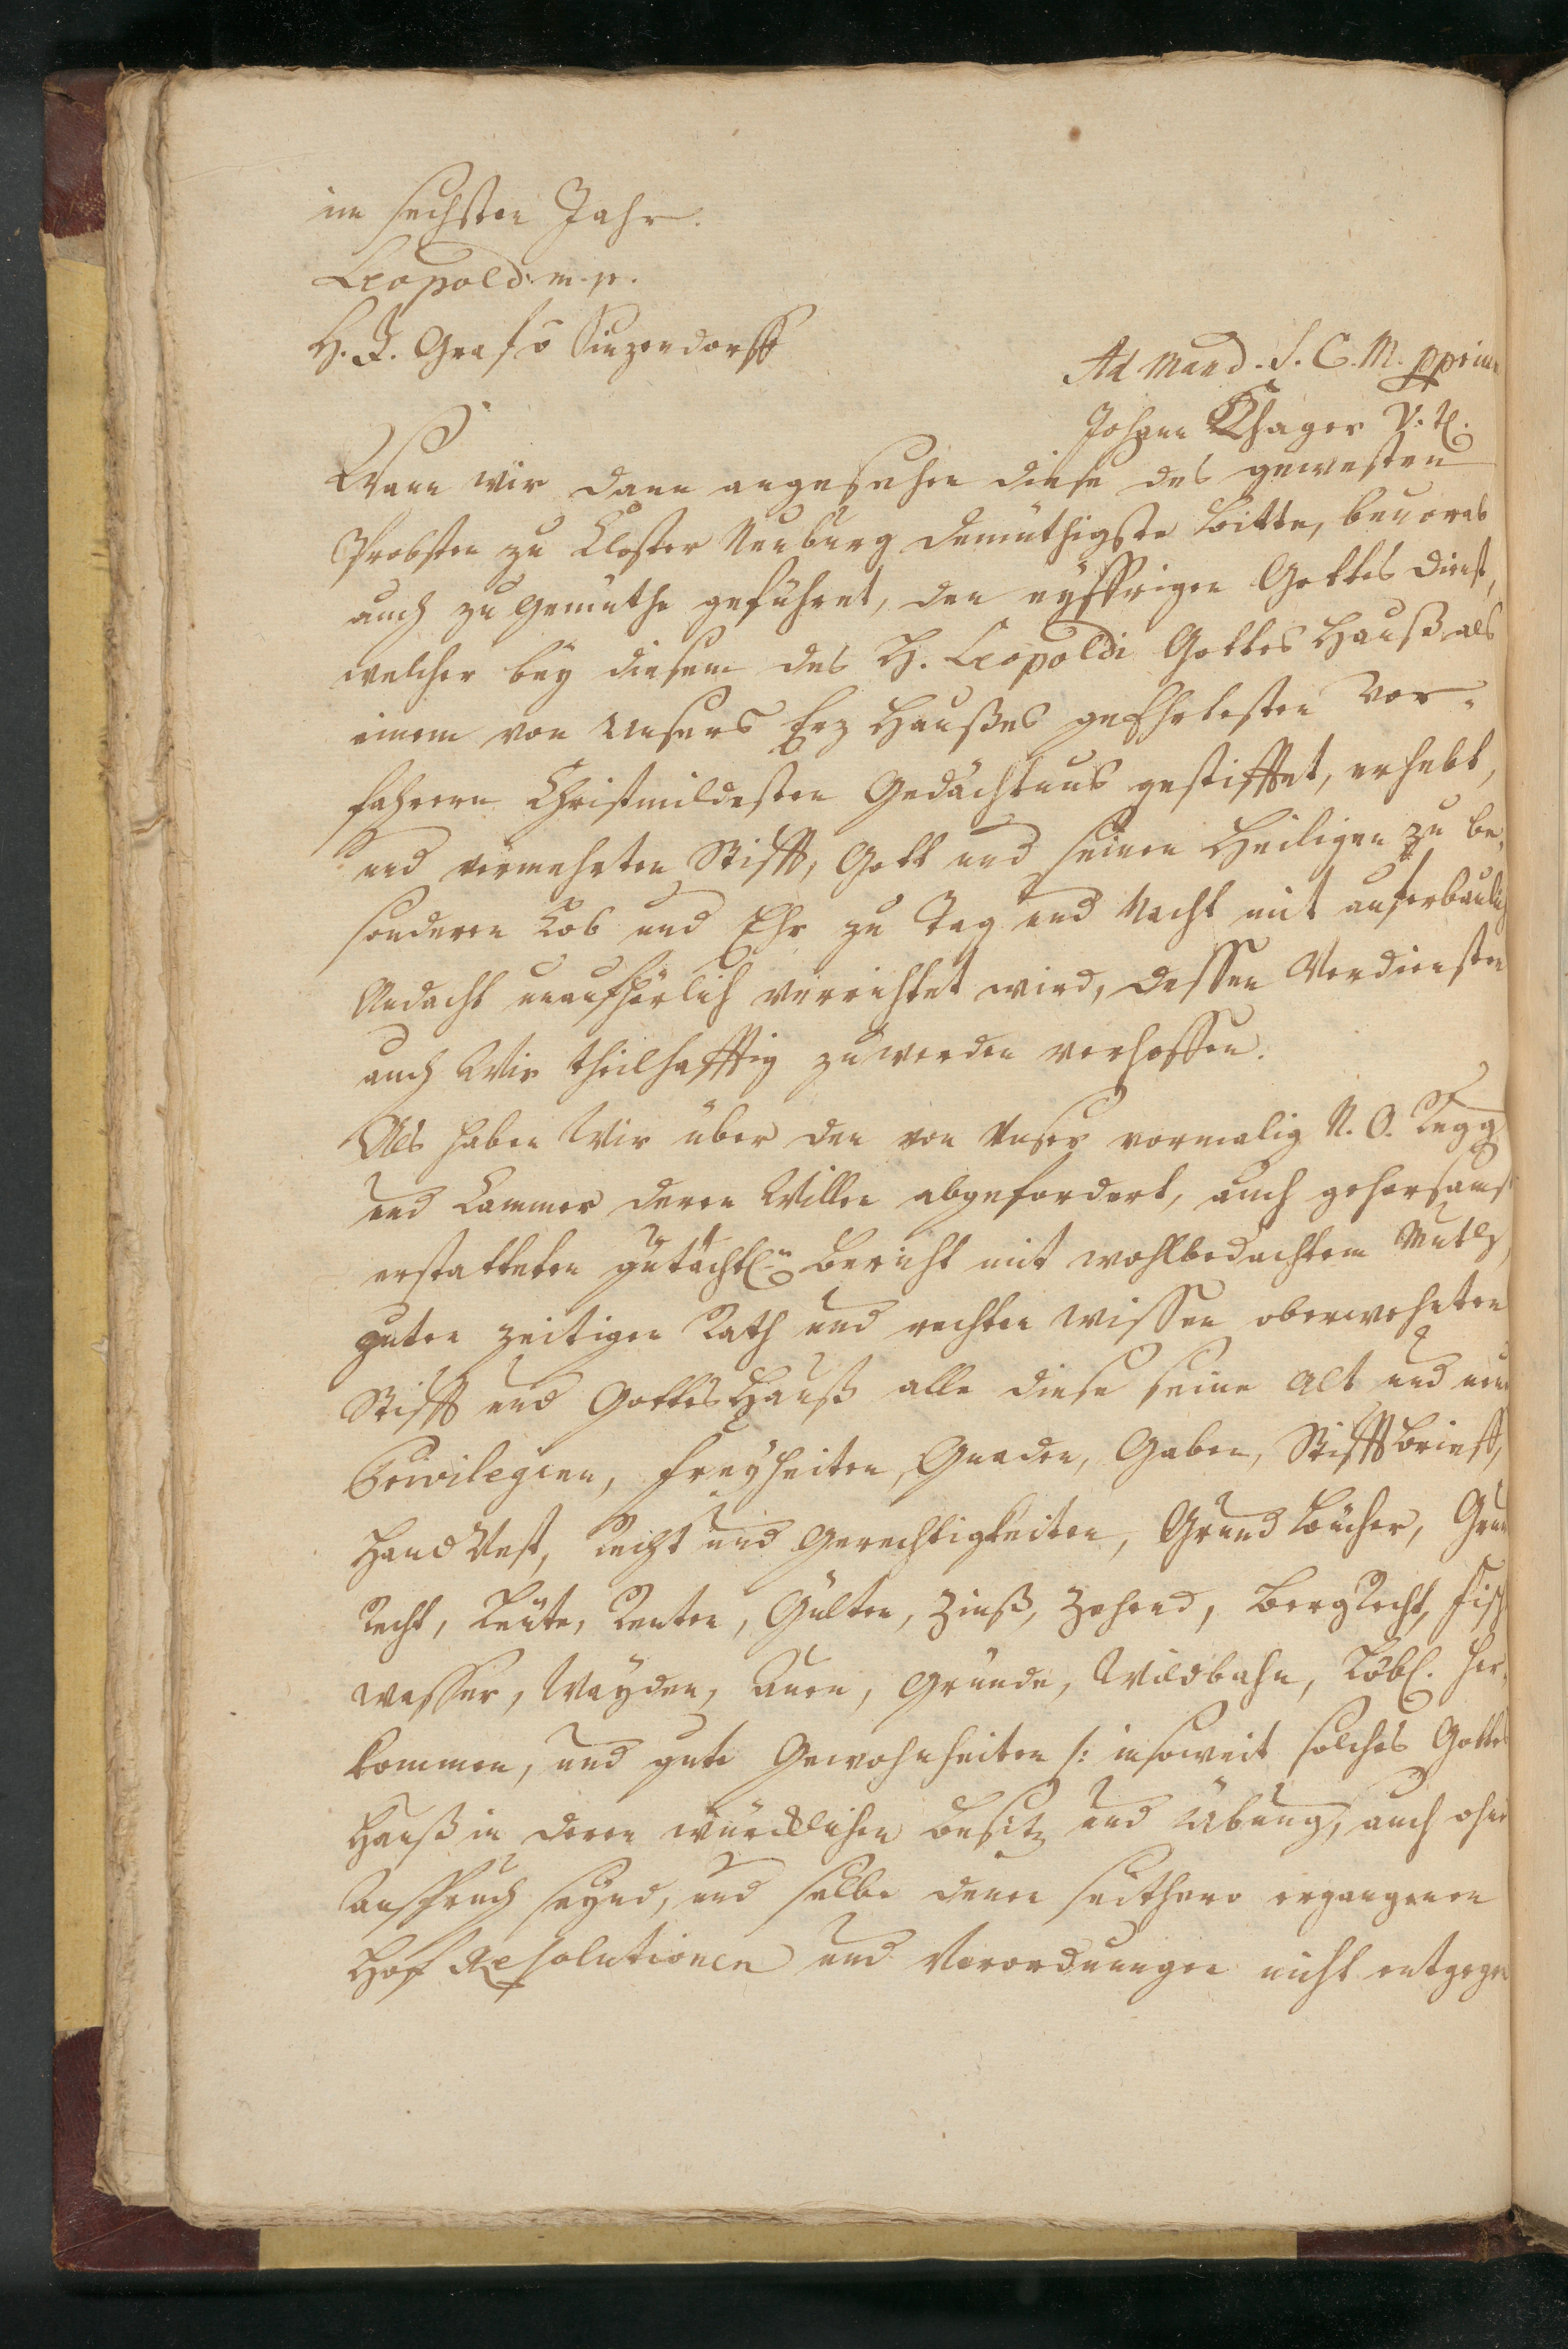 im sechsten Jahr.
Leopold: m. p.
H. J. Graf v Sinzendorff
Ad Mand. S. C. M. pprium
Johann Khager
Wann wir dann angesehen diese des gewesten
Probsten zu Closter Neuburg demüthigste bitte, bevorab
auch zu gemüthe geführet, den eyffrigen Gottes dienst,
welcher bey diesem des H. Leopoldi Gottes Hauß als
einem von Unsers Erz Haußes geEhrtesten Vor-
fahrern Christmildesten Gedächtnus gestifftet, erhebt,
und vermehrten Stifft, Gott und seinen Heiligen zu be-
sonderen Lob und Ehr zu Tag und Nacht mit auferbaulich
Andacht unaufhörlich verrichtet wird, dessen Verdiensten
auch Wir theilhafftig zuwerden verhoffen.
Als haben Wir über den von Unser vormalig N. O. Regg
und Cammer deren Willen abgefordert, auch gehorsamst
erstatteten gutächtl.n bericht mit wohlbedachtem Muth,
guten zeitigen Rath und rechten wissen oberwehnten
Stifft und Gottes Hauß alle diese seine alt und neue
Privilegien, freyheiten, Gnaden, Gaben, Stifftbrieff,
Hand Vest, Recht und Gerechtigkeiten, Grund bücher, Grun
Recht, Leüte, Renten, Gülten, Zinß, Zehend, bergRecht, Fisch
wasser, Wayden, Auen, gründe, Wildbahn, Löbl. her-
kommen, und gute Gewohnheiten /: insoweit solches Gottes
Hauß in deren würcklichen besitz und Übung, auch ohne
Anspruch seynd, und selbe denen seithero ergangenen
Hof Resolutionen und Verordnungen nicht entgegen